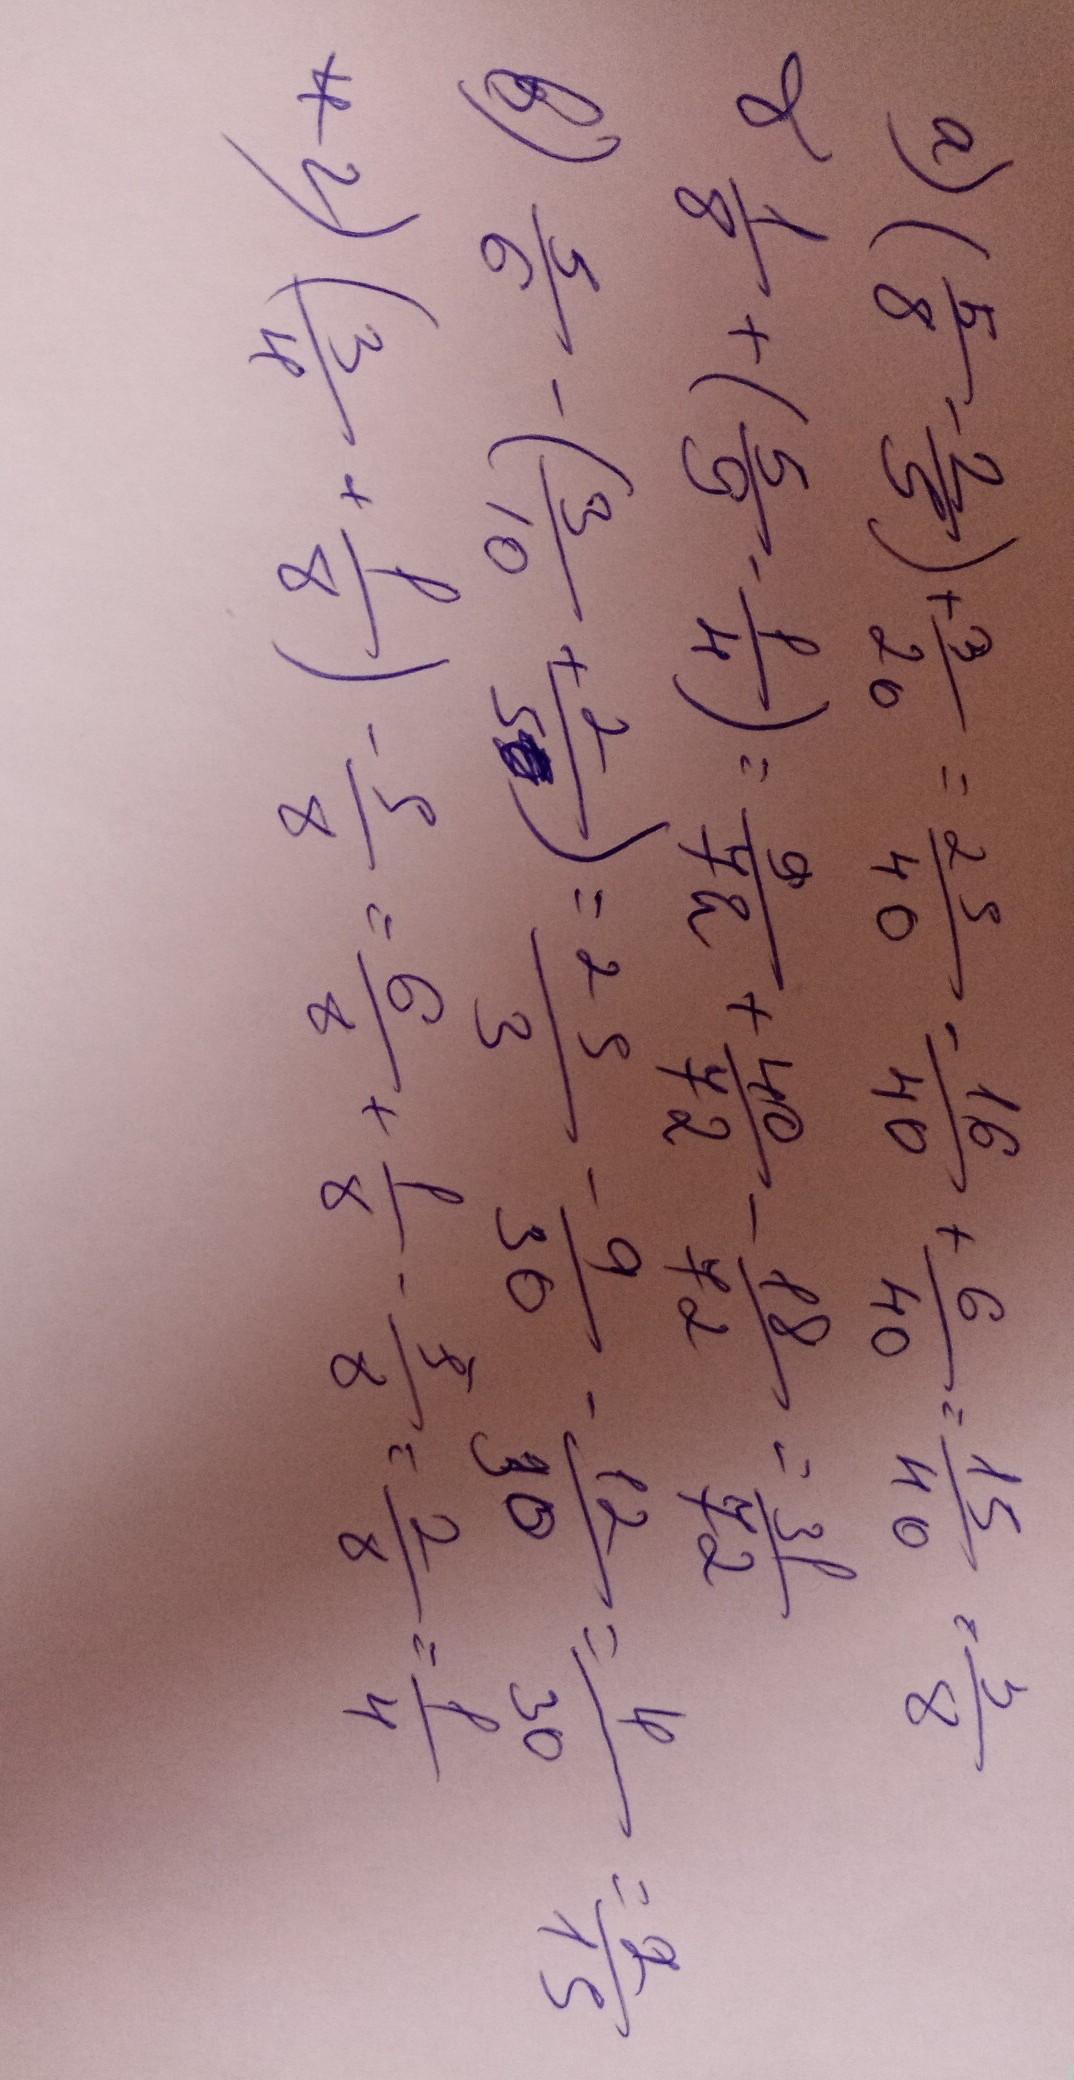 а) (5/8 - 2/5) + 3/20 = 25/40 - 16/40 + 6/40 = 15/40 = 3/8
1/8 + (5/9 - 1/4) = 9/72 + 40/72 - 18/72 = 31/72
в) 5/6 - (3/10 + 2/5) = 25/3 - 9/30 - 12/30 = 4/30 = 2/15
г) (3/4 + 1/8) - 5/8 = 6/8 + 1/8 - 5/8 = 2/8 = 1/4